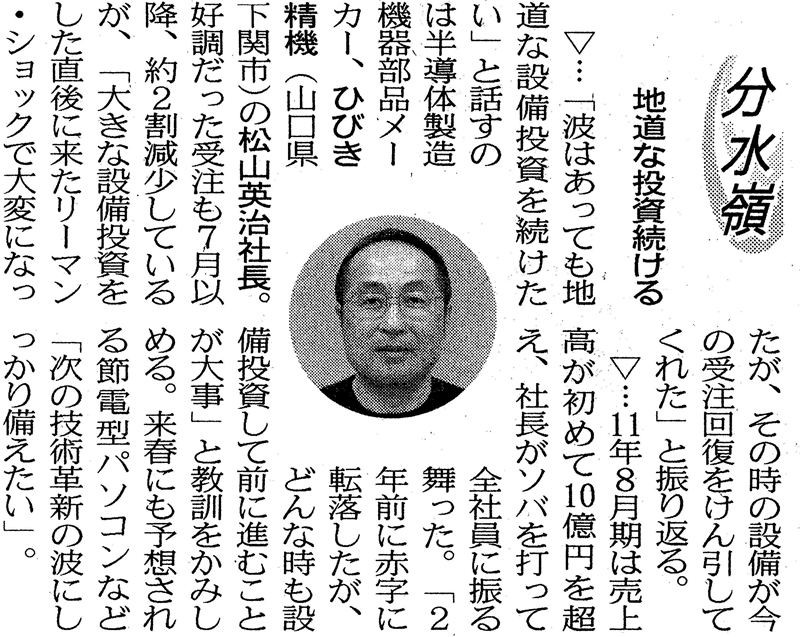 分水嶺
地道な投資続ける
▽…「波はあっても地
道な設備投資を続けた
い」と話すの
は半導体製造
機器部品メー
カー、ひびき
精機（山口県
下関市）の松山英治社長。
好調だった受注も7月以
降、約2割減少している
が、「大きな設備投資を
した直後に来たリーマン
・ショックで大変になっ
たが、その時の設備が今
の受注回復をけん引して
くれた」と振り返る。
▽…11年8月期は売上
高が初めて10億円を超
え、社長がソバを打って
全社員に振る
舞った。「2
年前に赤字に
転落したが、
どんな時も設
備投資して前に進むこと
が大事」と教訓をかみし
める。来春にも予想され
る節電型パソコンなど
「次の技術革新の波にし
っかり備えたい」。